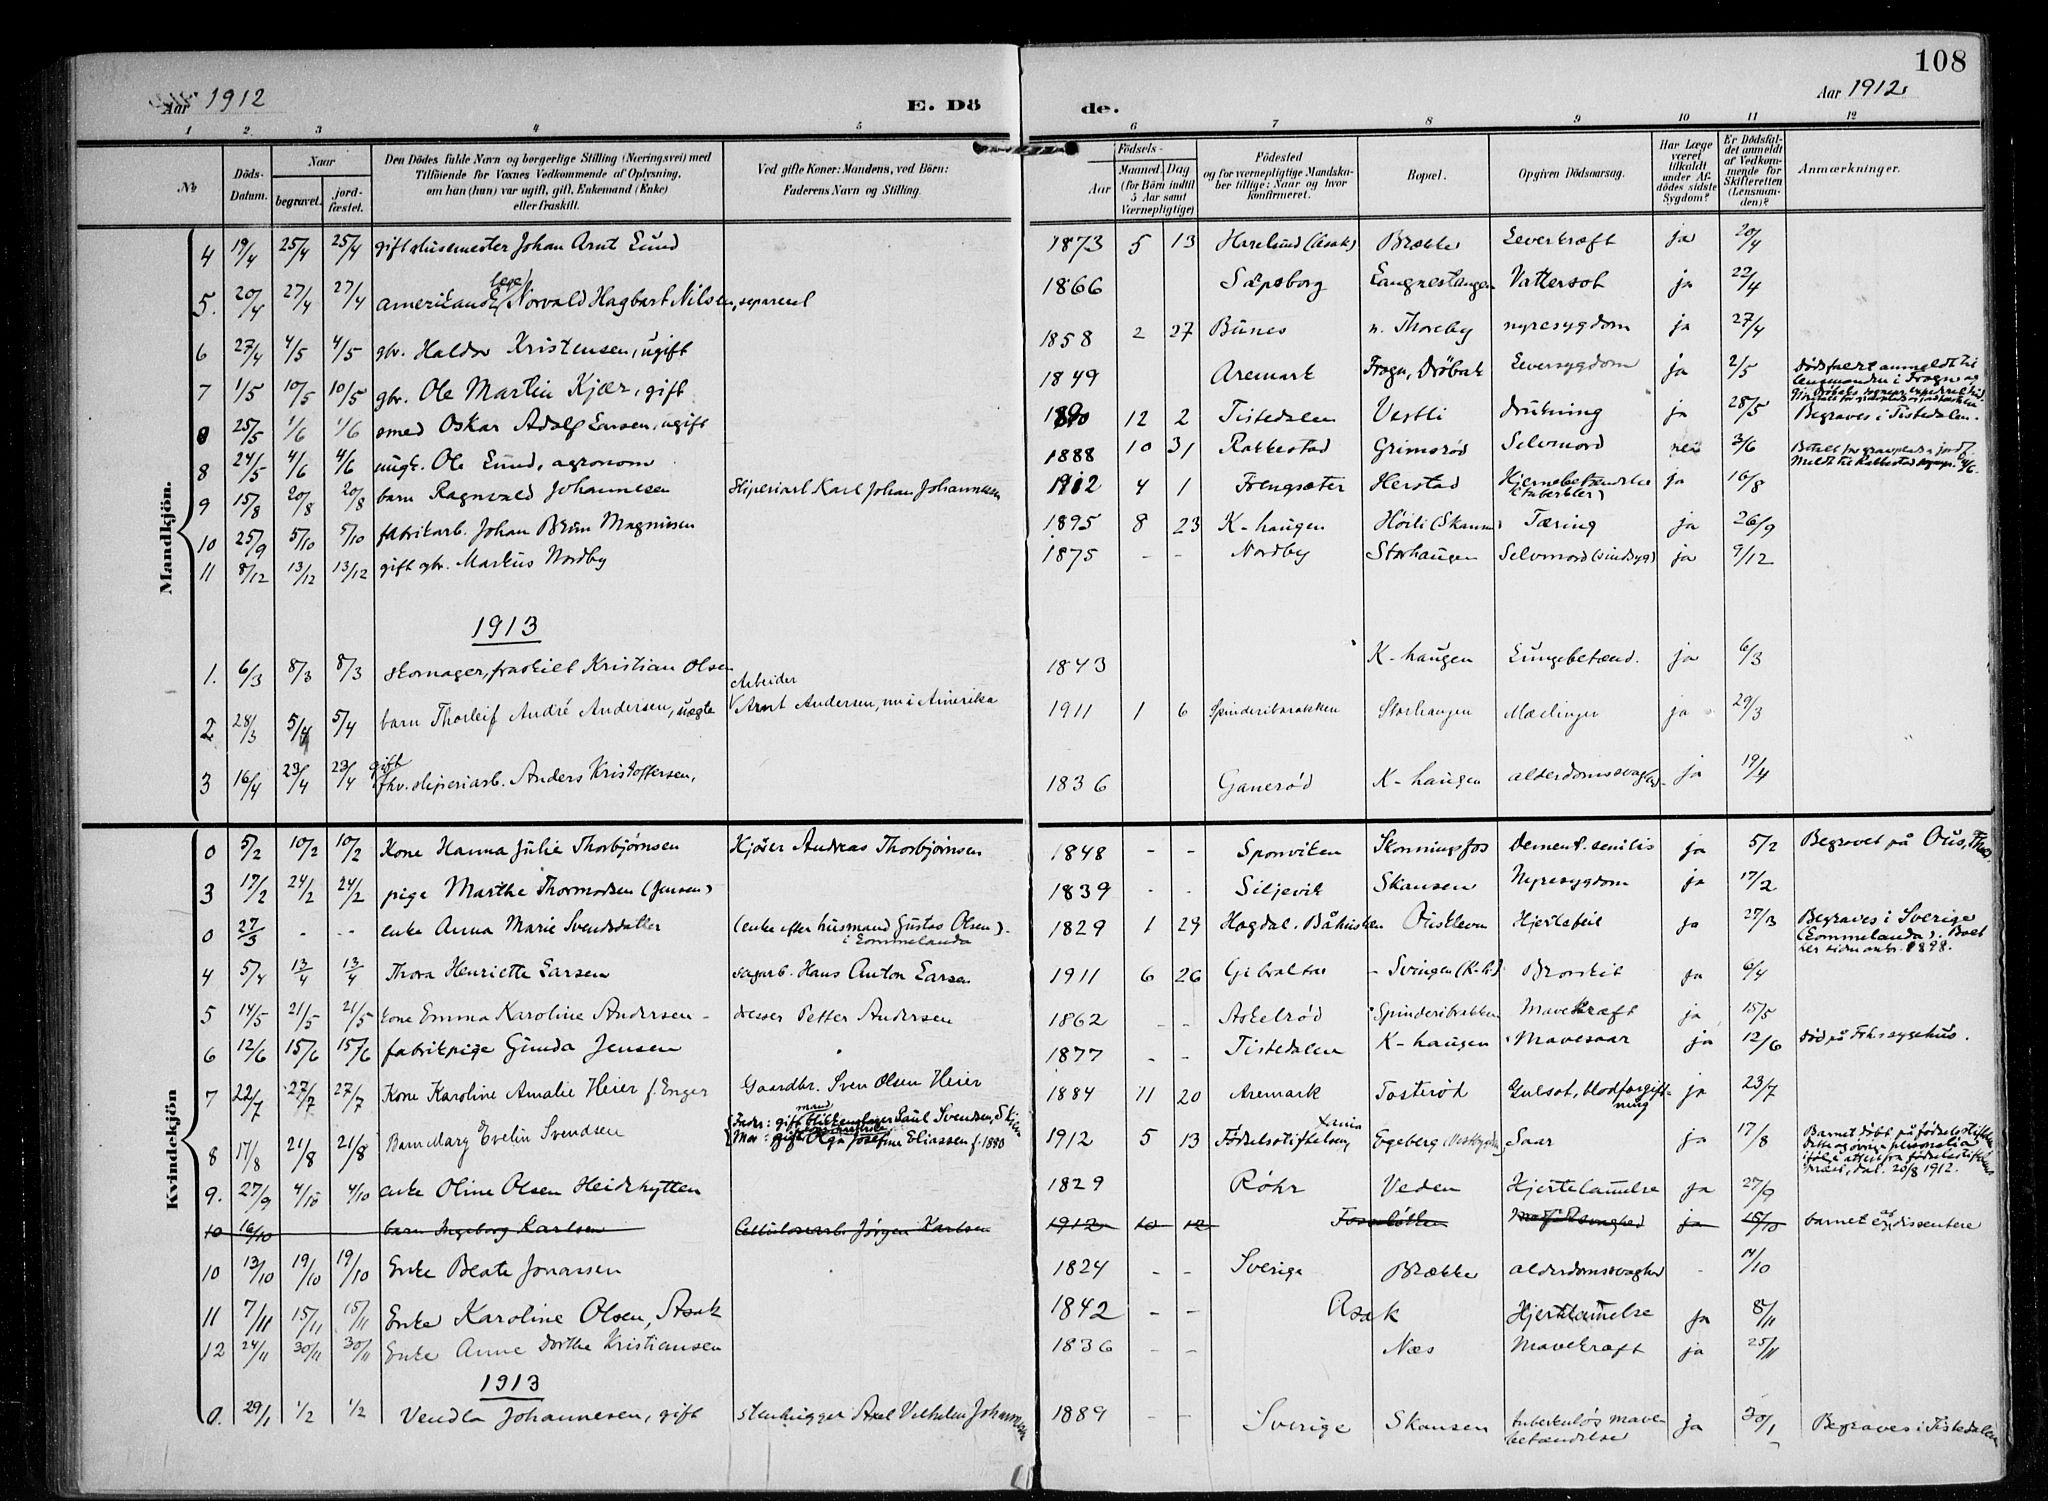 108
Aar 1912
E. Dö
de.
Aar 1912
1 2 3 4 5 6 7 8 9 10 11 12
No
Döds-Datum.
Naar
begravet.
jord-fæstet.
Den Dödes fulde Navn og borgerlige Stilling (Næringsvei) med
Tilföiende for Voxnes Vedkommende af Oplysning,
om han (hun) var ugift, gift, Enkemand (Enke)
eller fraskilt.
Ved gifte Koner: Mandens, ved Börn:
Faderens Navn og Stilling.
Födsels-
Aar
Maaned. Dag
(for Börn indtil
5 Aar samt
Værnepligtige)
Födested
og for værnepligtige Mandska-
ber tillige: Naar og hvor
konfirmeret.
Bopæl.
Opgiven Dödsaarsag.
Har Læge
været
tilkaldt
under Af-
dödes sidste
Sygdom?
Er Dödsfal-
det anmeldt
af Vedkom-
mende for
Skifteretten
(Lensman-
den)?
Anmærkninger.
Mandkjön.
4 19/4 25/4 25/4 gift slusemester Johan Arnt Lund 1873 5 13 Harelund (Asak) Brække Leverkræft ja 20/4
læge
5. 20/4 27/4 27/4 Norvald Hagbart Nilsen, separert 1866 Sarpsborg Langnestangen Vattersot ja 22/4
6 27/4 4/5 4/5 gbr. Haldor Kristensen, ugift 1858 2 27 Bunes n. Thoreby nyresygdom ja 27/4
7 1/5 10/5 10/5 gbr. Ole Martin Kjær, gift 1849 Aremark Frogn, Drøbak Leversygdom ja 2/5 Dødsfaldet anmeldt til
lensmanden i Frogn og
0 25/5 1/6 1/6 smed Oskar Adolf Larsen, ugift 1890 12 2 Tistedalen Vestli drukning ja 28/5 Begraves i Tistedalen.
8 24/5 4/6 4/6 ungk. Ole Lund, agronom 1888 10 31 Rakkestad Grimsrød Selvmord nei 3/6
9 15/8 20/8 20/8 barn Ragnvald Johannesen Sliperiarb. Karl Johan Johannesen 1912 4 1 Frengsæter Herstad Hjernebetændelse ja 16/8
10 25/9 5/10 5/10 fabrikarb. Johan Brun Magnussen 1895 8 23 K-haugen Høili (Skansen) Tæring ja 26/9
11 8/12 13/12 13/12 gift gbr. Markus Nordby 1875 - - Nordby Storhaugen Selvmord (sindsyg) ja 9/12
1913
1. 6/3 8/3 8/3 skomager, fraskilt Kristian Olsen 1843 K-haugen Lungebetænd. ja 6/3
Arbeider
2 28/3 5/4 5/4 barn Thorleif André Andersen, uægte Arnt Andersen, nu i Amerika 1911 1 6 Spinderibarakken Storhaugen Mæslinger ja 29/3
gift
3 16/4 23/4 23/4 fhv. sliperiarb. Anders Kristoffersen, 1836 Ganerød K-haugen alderdomssvaghed ja 19/4
Kvindekjön
0 5/2 10/2 10/2 Kone Hanna Julie Thorbjørnsen Kjører Andreas Thorbjørnsen 1848 - - Sponviken Skonningsfos Dement. senilis ja 5/2 Begravet på Ous,
3 17/2 24/2 24/2 pige Marthe Thormodsen (Jensen) 1839 - - Siljevik Skansen Nyresygdom ja 17/2
0 27/3 - - enke Anna Marie Svendsdatter (enke efter husmand Gustav Olsen) 1829 1 29 Hogdal. Båhuslen Ouistleven Hjertefeil ja 27/3 Begraves i Sverige
i Lommelanda
(Lommelanda). Boet
her siden okt. 1898.
4 5/4 13/4 13/4 Thora Henriette Larsen sagarb. Hans Anton Larsen 1911 6 26 Gibraltar Svingen (K-h.) Bronkit ja 6/4
5 14/5 21/5 21/5 kone Emma Karoline Andersen - dresser Petter Andersen 1862 - - Askelrød Spinderibrakken Mavekræft ja 15/5
6 12/6 15/6 15/6 fabrikpige Gunda Jensen 1877 - - Tistedalen K-haugen Mavesaar ja 12/6 Død på Fr.hs sygehus.
7 22/7 27/7 27/7 Kone Karoline Amalie Heier f. Enger Gaardbr. Sven Olsen Heier 1884 11 20 Aremark Tosterød Gulsot, blodforgiftning ja 23/7
8 17/8 21/8 21/8 Barn Mary Evelin Svendsen Fader: gift blikkenslager Paul Svendsen, Skien
Mor: gift Olga Josefine Eliassen f. 1880 1912 5 13 Fødselsstiftelsen, Kr.nia Egeberg (Vestbygden) Saar ja 17/8 Barnet døbt på fødselsstiftelsen
præst, dat. 20/8 1912.
9. 27/9 4/10 4/10 enke Oline Olsen Heidehytten 1829 Røhr Veden Hjertelammelse ja 27/9
10 16/10 barn Ingeborg Karlsen Cellulosearb. Jørgen Karlsen 1912 10 12 Fossløkken Medfødt svaghed ja 15/10 barnet af dissentere
10 13/10 19/10 19/10 Enke Beate Jonassen 1824 - - Sverige Brække alderdomssvaghed - 14/10
11 7/11 15/11 15/11 Enke Karoline Olsen, Asak 1842 - - Asak Hjertelammelse ja 8/11
12 24/11 30/11 30/11 Enke Anne Dorthe Kristiansen 1836 - - Næs Mavekræft ja 25/11
1913
0. 29/1 1/2 1/2 Vendla Johannesen, gift stenhugger Axel Vilhelm Johannesen 1889 - - Sverige Skansen tuberkuløs mave-
betændelse ja 30/1 Begraves i Tistedalen